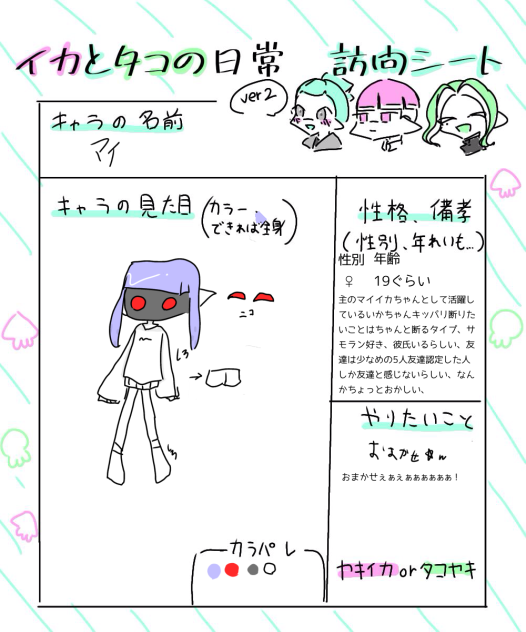 イカとタコの日常 訪向シート
ver2
キャラの名前
マイ
キャラの見た目(カラー、できれば全身)
ニコ
カラパレ
性格、備孝
(性別、年れいも…)
性別 年齢
♀ 19ぐらい
主のマイイカちゃんとして活躍し
ているいかちゃんキッパリ断りた
いことはちゃんと断るタイプ、サ
モラン好き、彼氏いるらしい、友
達は少なめの5人友達認定した人
しか友達と感じないらしい、なん
かちょっとおかしい、
やりたいこと
おまかせぇぁぇぁぁぁぁぁぁ!
ヤキイカ or タコヤキ